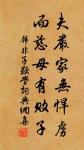 夫嚴家無悍虜
而慈母有敗子
韓非子顯學詞典網喜